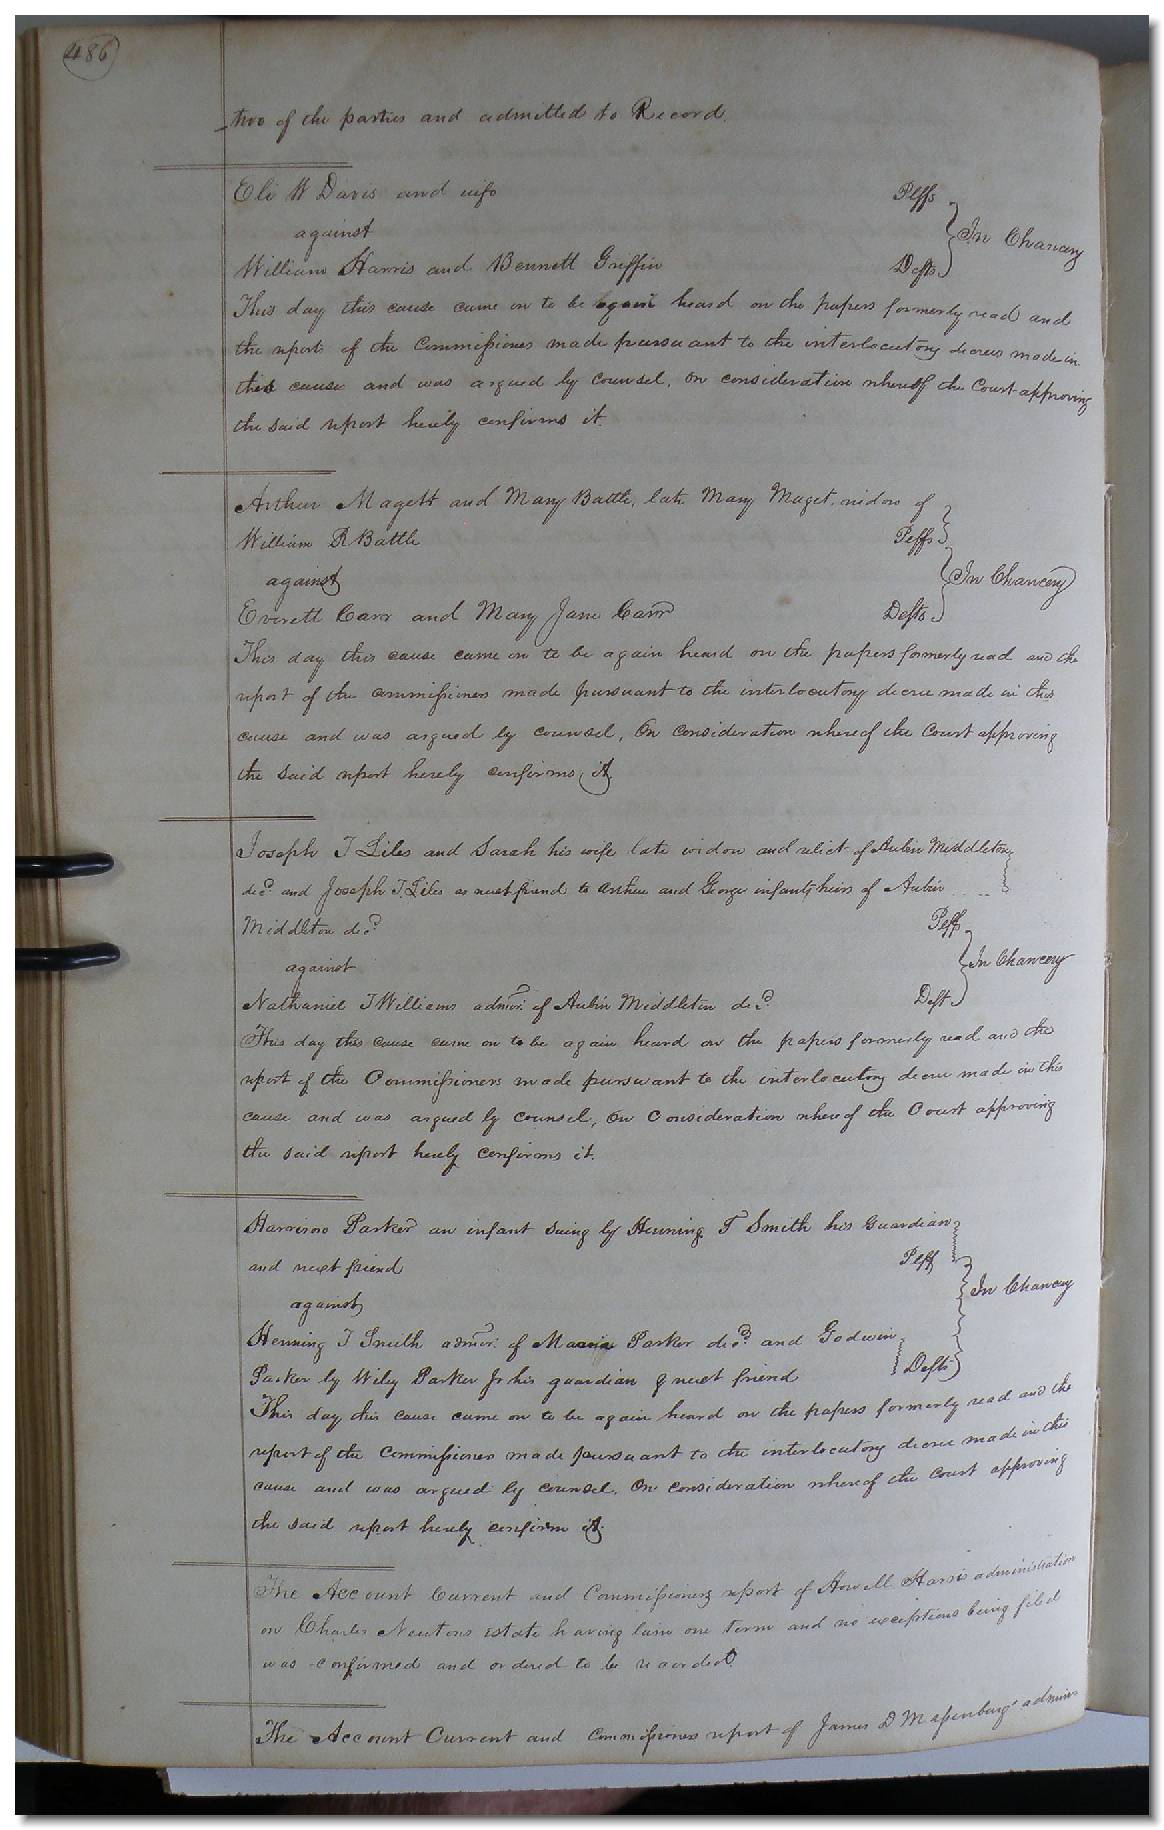 486
two of the parties and admitted to Record.
Eli W Davis and wife Plffs
against In Chancery
William Harris and Bennett Griffin Defts
This day this cause came on to be again heard on the papers formerly read and
the report of the Commissioners made pursuant to the interlocutory decree made in
this cause and was argued by counsel, on consideration whereof the Court approving
the said report hereby confirms it.
Arthur Magett and Mary Battle, late Mary Maget, widow of
William R Battle Plffs
against In Chancery
Everett Carr and Mary Jane Carr Defts
This day this cause came on to be again heard on the papers formerly read and the
report of the commissioners made pursuant to the interlocutory decree made in this
cause and was argued by counsel, On consideration whereof the Court approving
the said report hereby confirms it
Joseph T Liles and Sarah his wife late widow and relict of Aubin Middleton
decd and Joseph T. Liles as next friend to Arthur and George infants, heirs of Aubin
Middleton decd Plff
against In Chancery
Nathaniel T Williams admor. of Aubin Middleton decd Deft
This day this cause came on to be again heard on the papers formerly read and the
report of the Commissioners made pursuant to the interlocutory decree made in this
cause and was argued by counsel, on Consideration whereof the Court approving
the said report hereby confirms it.
Harrison Parker an infant suing by Henning T Smith his Guardian
and next friend Plff
against In Chancery
Henning T Smith admor. of Parker decd and Godwin
Parker by Wiley Parker Jr his guardian & next friend Defts
This day this cause came on to be again heard on the papers formerly read and the
report of the Commissioners made pursuant to the interlocutory decree made in this
cause and was argued by counsel. On consideration whereof the Court approving
the said report hereby confirm it.
The Account Current and Commissioners report of Howell Harris administration
on Charles Newtons estate having lain one Term and no exceptions being filed
was confirmed and ordered to be recorded.
The Account Current and Commissioners report of James D Massenburg' adminis